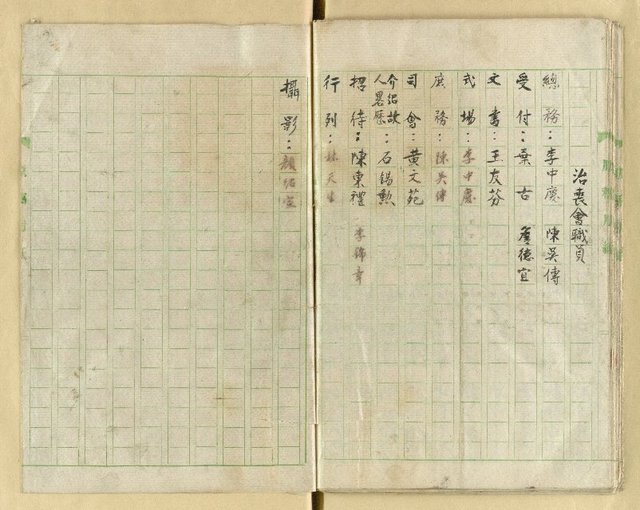 治喪會職員
總務：李中慶　陳吳傳
受付：葉古　盧德宜
文書：王友芬
式場：李中慶
庶務：陳吳傳
司會：黃文苑
介紹故人畧歷：石錫勲
招待：陳東禮　李錦章
行列：林天生
攝影：顏紹宜